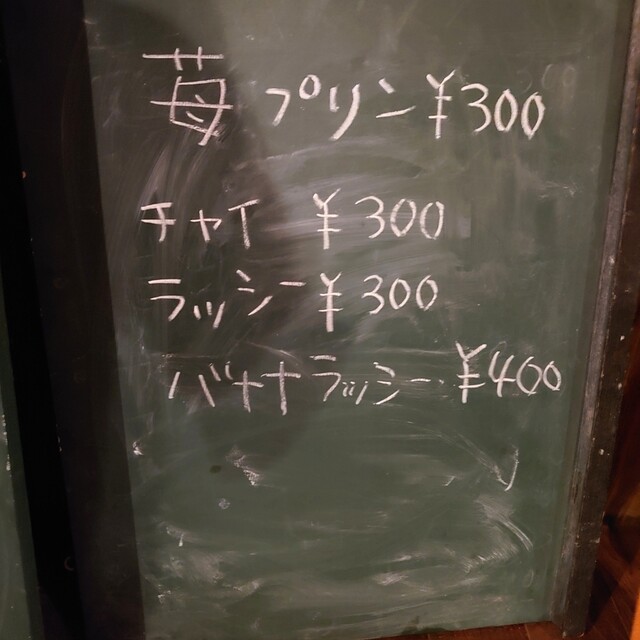 苺プリン ¥300
チャイ ¥300
ラッシー ¥300
バナナラッシー ¥400